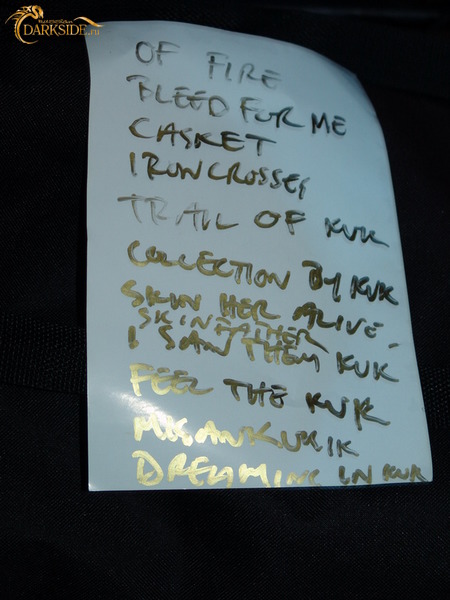 DARKSIDE.ru
OF FIRE
BLEED FOR ME
CASKET
IRONCROSSES
TRAIL OF KUK
COLLECTION BY KUK
SKIN HER ALIVE
SKINFATHER
I SAW THEM KUK
FEEL THE KUK
DREAMING IN KUK